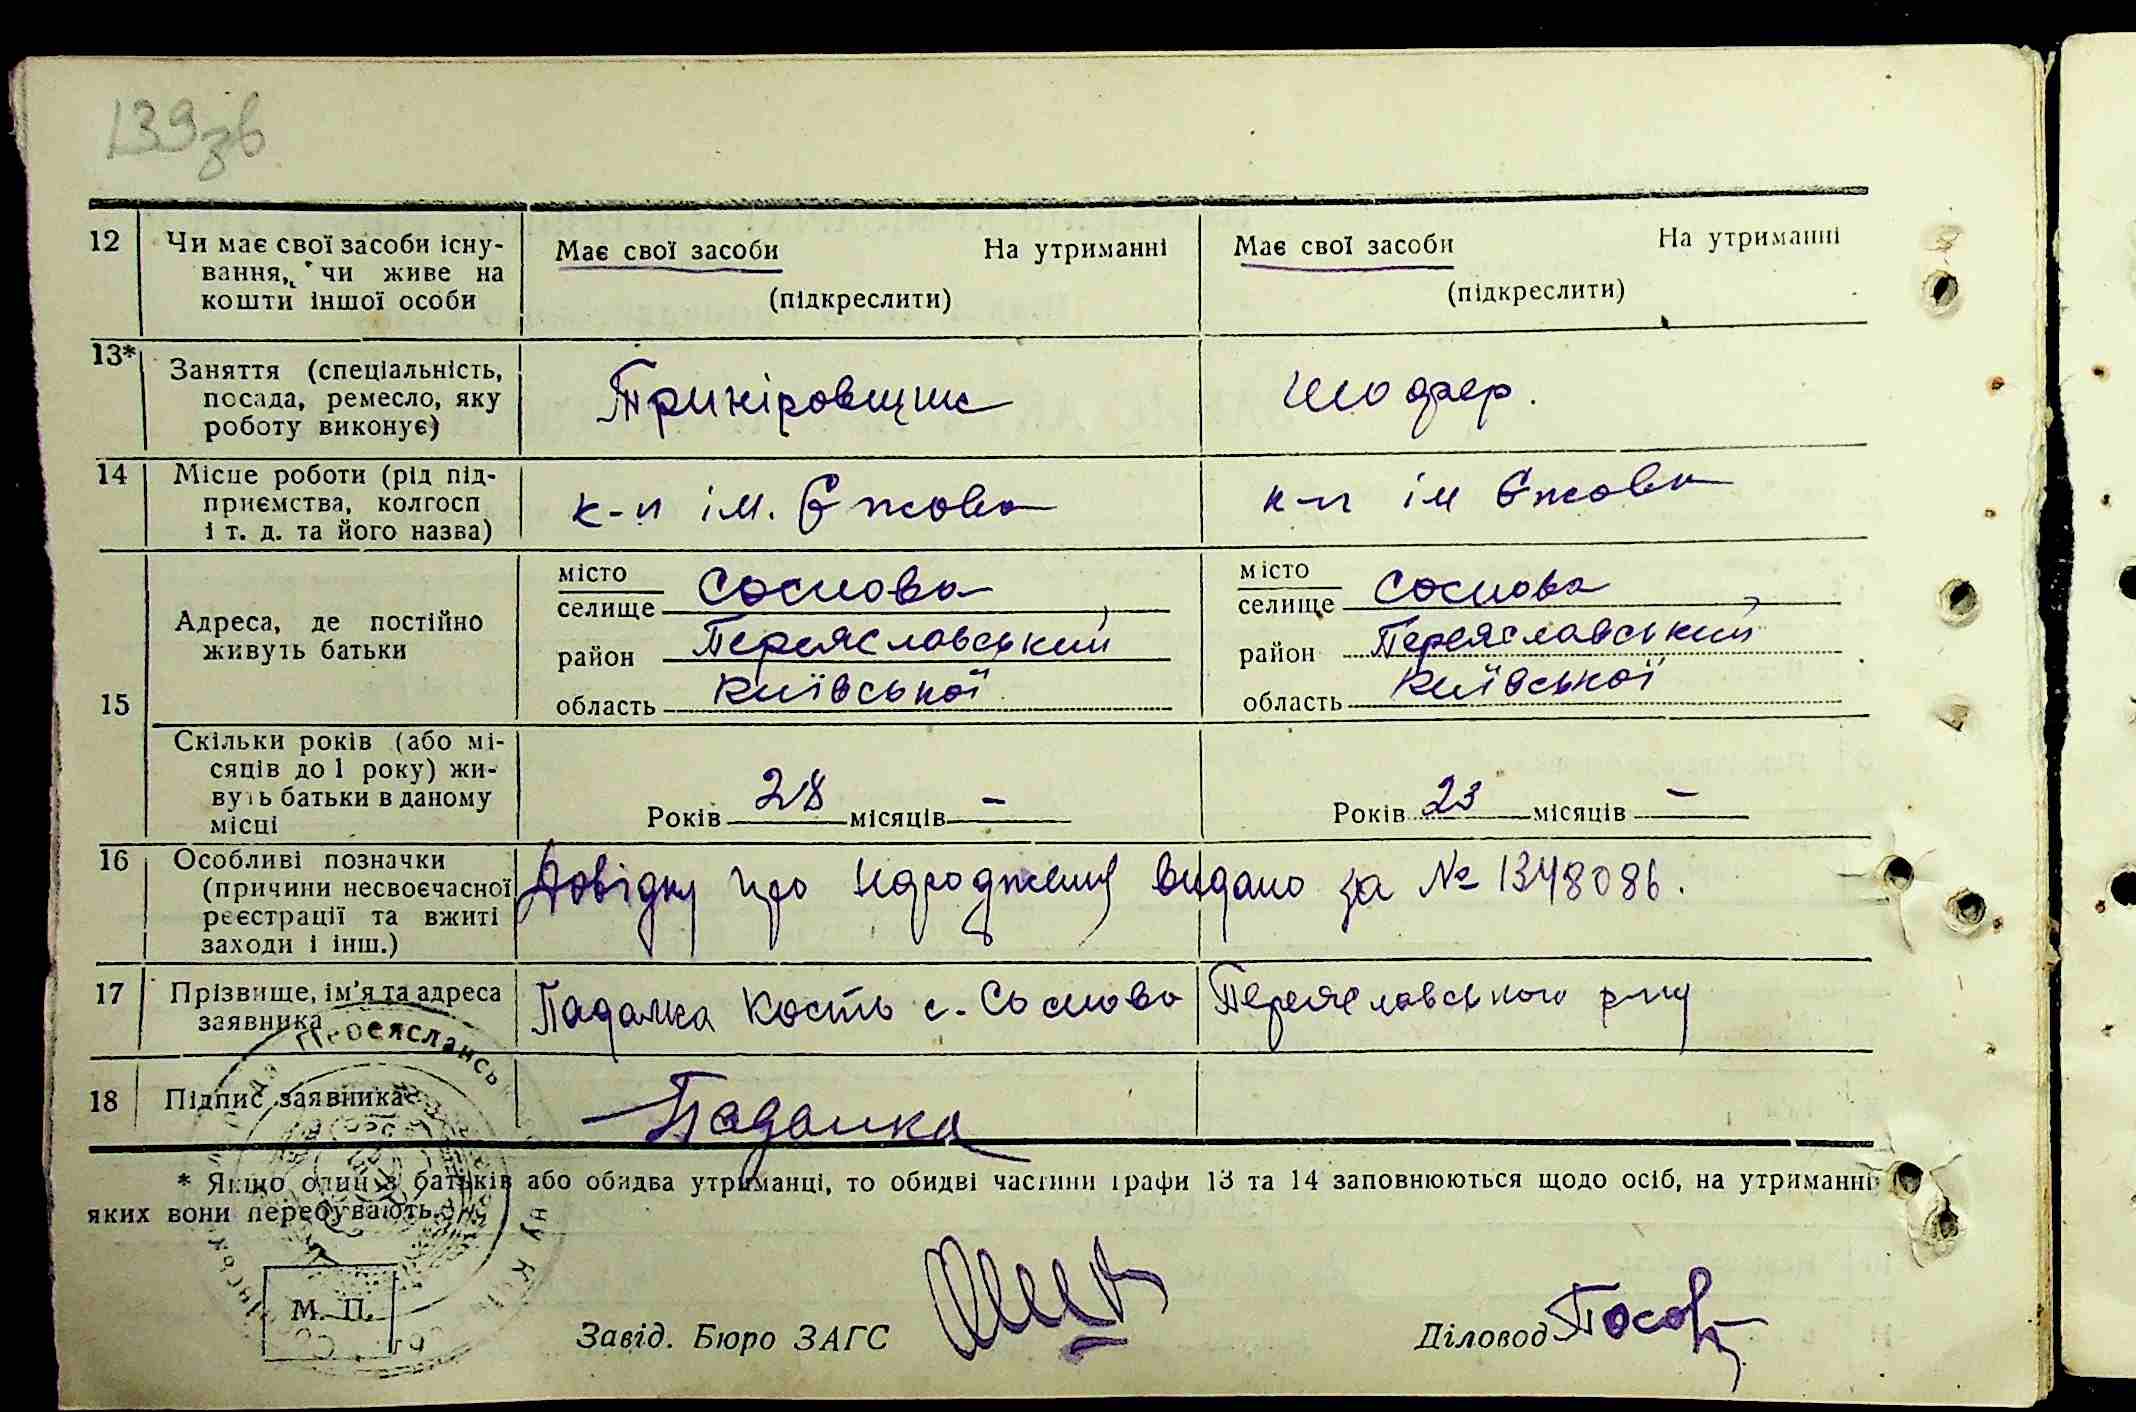 139зв
12 Чи має свої засоби існу-
вання, чи живе на
кошти іншої особи
Має свої засоби На утриманні
(підкреслити)
Має свої засоби На утриманні
(підкреслити)
13* Заняття (спеціальність,
посада, ремесло, яку
роботу виконує)
шофер.
14 Місце роботи (рід під-
приємства, колгосп
і т. д. та його назва)
к-п ім. Єжова
к-п ім Єжова
15 Адреса, де постійно
живуть батьки
місто
селище Соснова,
район Переяславський
область Київської
місто
селище Соснова,
район Переяславський
область Київської
Скільки років (або мі-
сяців до 1 року) жи-
вуть батьки в даному
місці
Років 28 місяців –
Років 23 місяців –
16 Особливі позначки
(причини несвоєчасної
реєстрації та вжиті
заходи і інш.)
Довідку про видано за № 1348086.
17 Прізвище, ім'я та адреса
заявника
Падалка Кость с. Соснова Переяславського р-ну
18 Підпис заявника
Падалка
* Якщо один з батьків або обидва утриманці, то обидві частини графи 13 та 14 заповнюються щодо осіб, на утриманні
яких вони перебувають.
М. П.
Завід. Бюро ЗАГС
Діловод